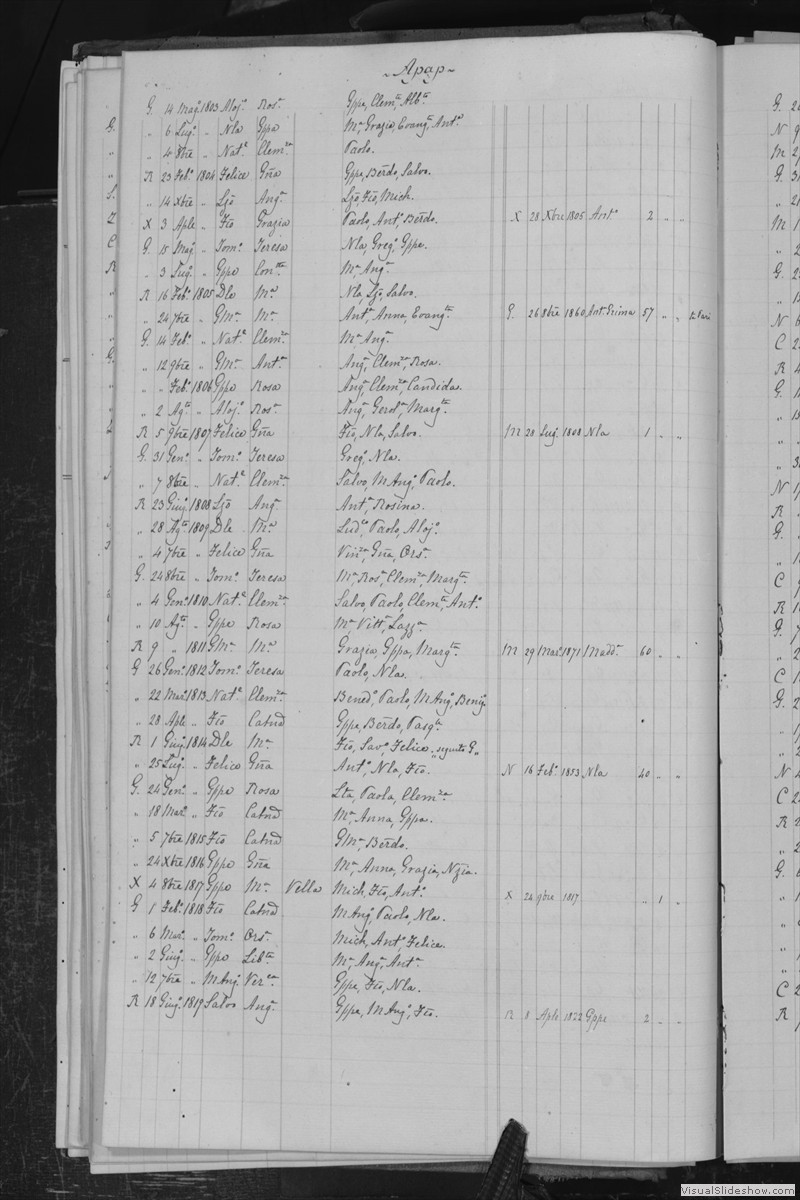 ~Apap~
G. 14 Mag. 1803 Aloj. Ros.ª Gppe, Clem.te, Alb.ta
" 6 Lug. " Nla Gppa M.ª, Grazia, Evang.ta, Ant.ª
" 4 8bre " Nat.e Clem.za Paolo.
R 23 Feb. 1804 Felice Gña Gppe, Berdo, Salvo.
" 14 Xbre " Ljo Ang.ª Ljo, Fco, Mich.
X 3 Aple " Fco Grazia Paolo, Ant.º, Berdo. X 28 Xbre 1805 Ant.º 2 " "
G. 15 Mag. " Tom.º Teresa Nla, Greg.º, Gppe.
" 3 Lug. " Gppe Con.tta M.ª Ang.ª
R 16 Feb. 1805 Dle M.ª Nla, Ljo, Salvo.
" 24 7bre " GM.ª M.ª Ant.ª, Anna, Evang.ta G. 26 8bre 1860 Ant. Prima 57 " "
G. 14 Feb. " Nat.e Clem.za M.ª Ang.ª
" 12 9bre " GM.ª Ant.ª Ang.ª, Clem.za, Rosa.
" " Feb. 1806 Gppe Rosa Ang.ª, Clem.za, Candida.
" 2 Ag.to " Aloj. Ros.ª Ang.ª, Gerol.ª, Marg.ta
R 5 9bre 1807 Felice Gña Fco, Nla, Salvo. M 28 Lug. 1808 Nla 1 " "
G. 31 Gen. " Tom.º Teresa Greg.º, Nla.
" 7 8bre " Nat.e Clem.za Salvo, M Ang.º, Paolo.
R 23 Giug. 1808 Ljo Ang.ª Ant.ª, Rosina.
" 28 Ag.to 1809 Dle M.ª Lud.co, Paolo, Aloj.º
" 4 7bre " Felice Gña Vin.za, Gña, Ors.ª
G. 24 8bre " Tom.º Teresa M.ª, Ros.ª, Clem.za, Marg.ta
" 4 Gen. 1810 Nat.e Clem.za Salvo, Paolo, Clem.te, Ant.º
" 10 Ag.to " Gppe Rosa M.ª, Vitt.ª, Lazz.ª
R 9 " 1811 GM.ª M.ª Grazia, Gppa, Marg.ta M 29 Mar. 1871 Madd.ª 60 " "
G 26 Gen. 1812 Tom.º Teresa Paolo, Nla.
" 22 Mar. 1813 Nat.e Clem.za Bened.º, Paolo, M Ang.º, Benig.
" 28 Aple " Fco Catnã Gppe, Berdo, Pasq.le
R 1 Giug. 1814 Dle M.ª Fco, Sav.º, Felice, "segunto G"
" 25 Lug. " Felice Gña Ant.º, Nla, Fco. N 16 Feb. 1853 Nla 40 " "
G. 24 Gen. " Gppe Rosa Lta, Paola, Clem.za
" 18 Mar. " Fco Catnã M.ª Anna, Gppa.
" 5 7bre 1815 Fco Catnã GM.ª, Berdo.
" 24 Xbre 1816 Gppe Gña M.ª Anna, Grazia, Nzia.
X 4 8bre 1817 Gppe M.ª Vella Mich, Fco, Ant.º X 24 9bre 1817 " 1 "
G 1 Feb. 1818 Fco Catnã M Ang.º, Paolo, Nla.
" 6 Mar. " Tom.º Ors.ª Mich, Ant.º, Felice.
" 2 Giug. " Gppe Lib.ta M.ª Ang.ª, Ant.ª
" 12 7bre " M Ang.º Ver.ca Gppe, Fco, Nla.
R 18 Giug. 1819 Salvo Ang.ª Gppe, M Ang.º, Fco. R 8 Aple 1822 Gppe 2 " "
VisualSlideshow.com